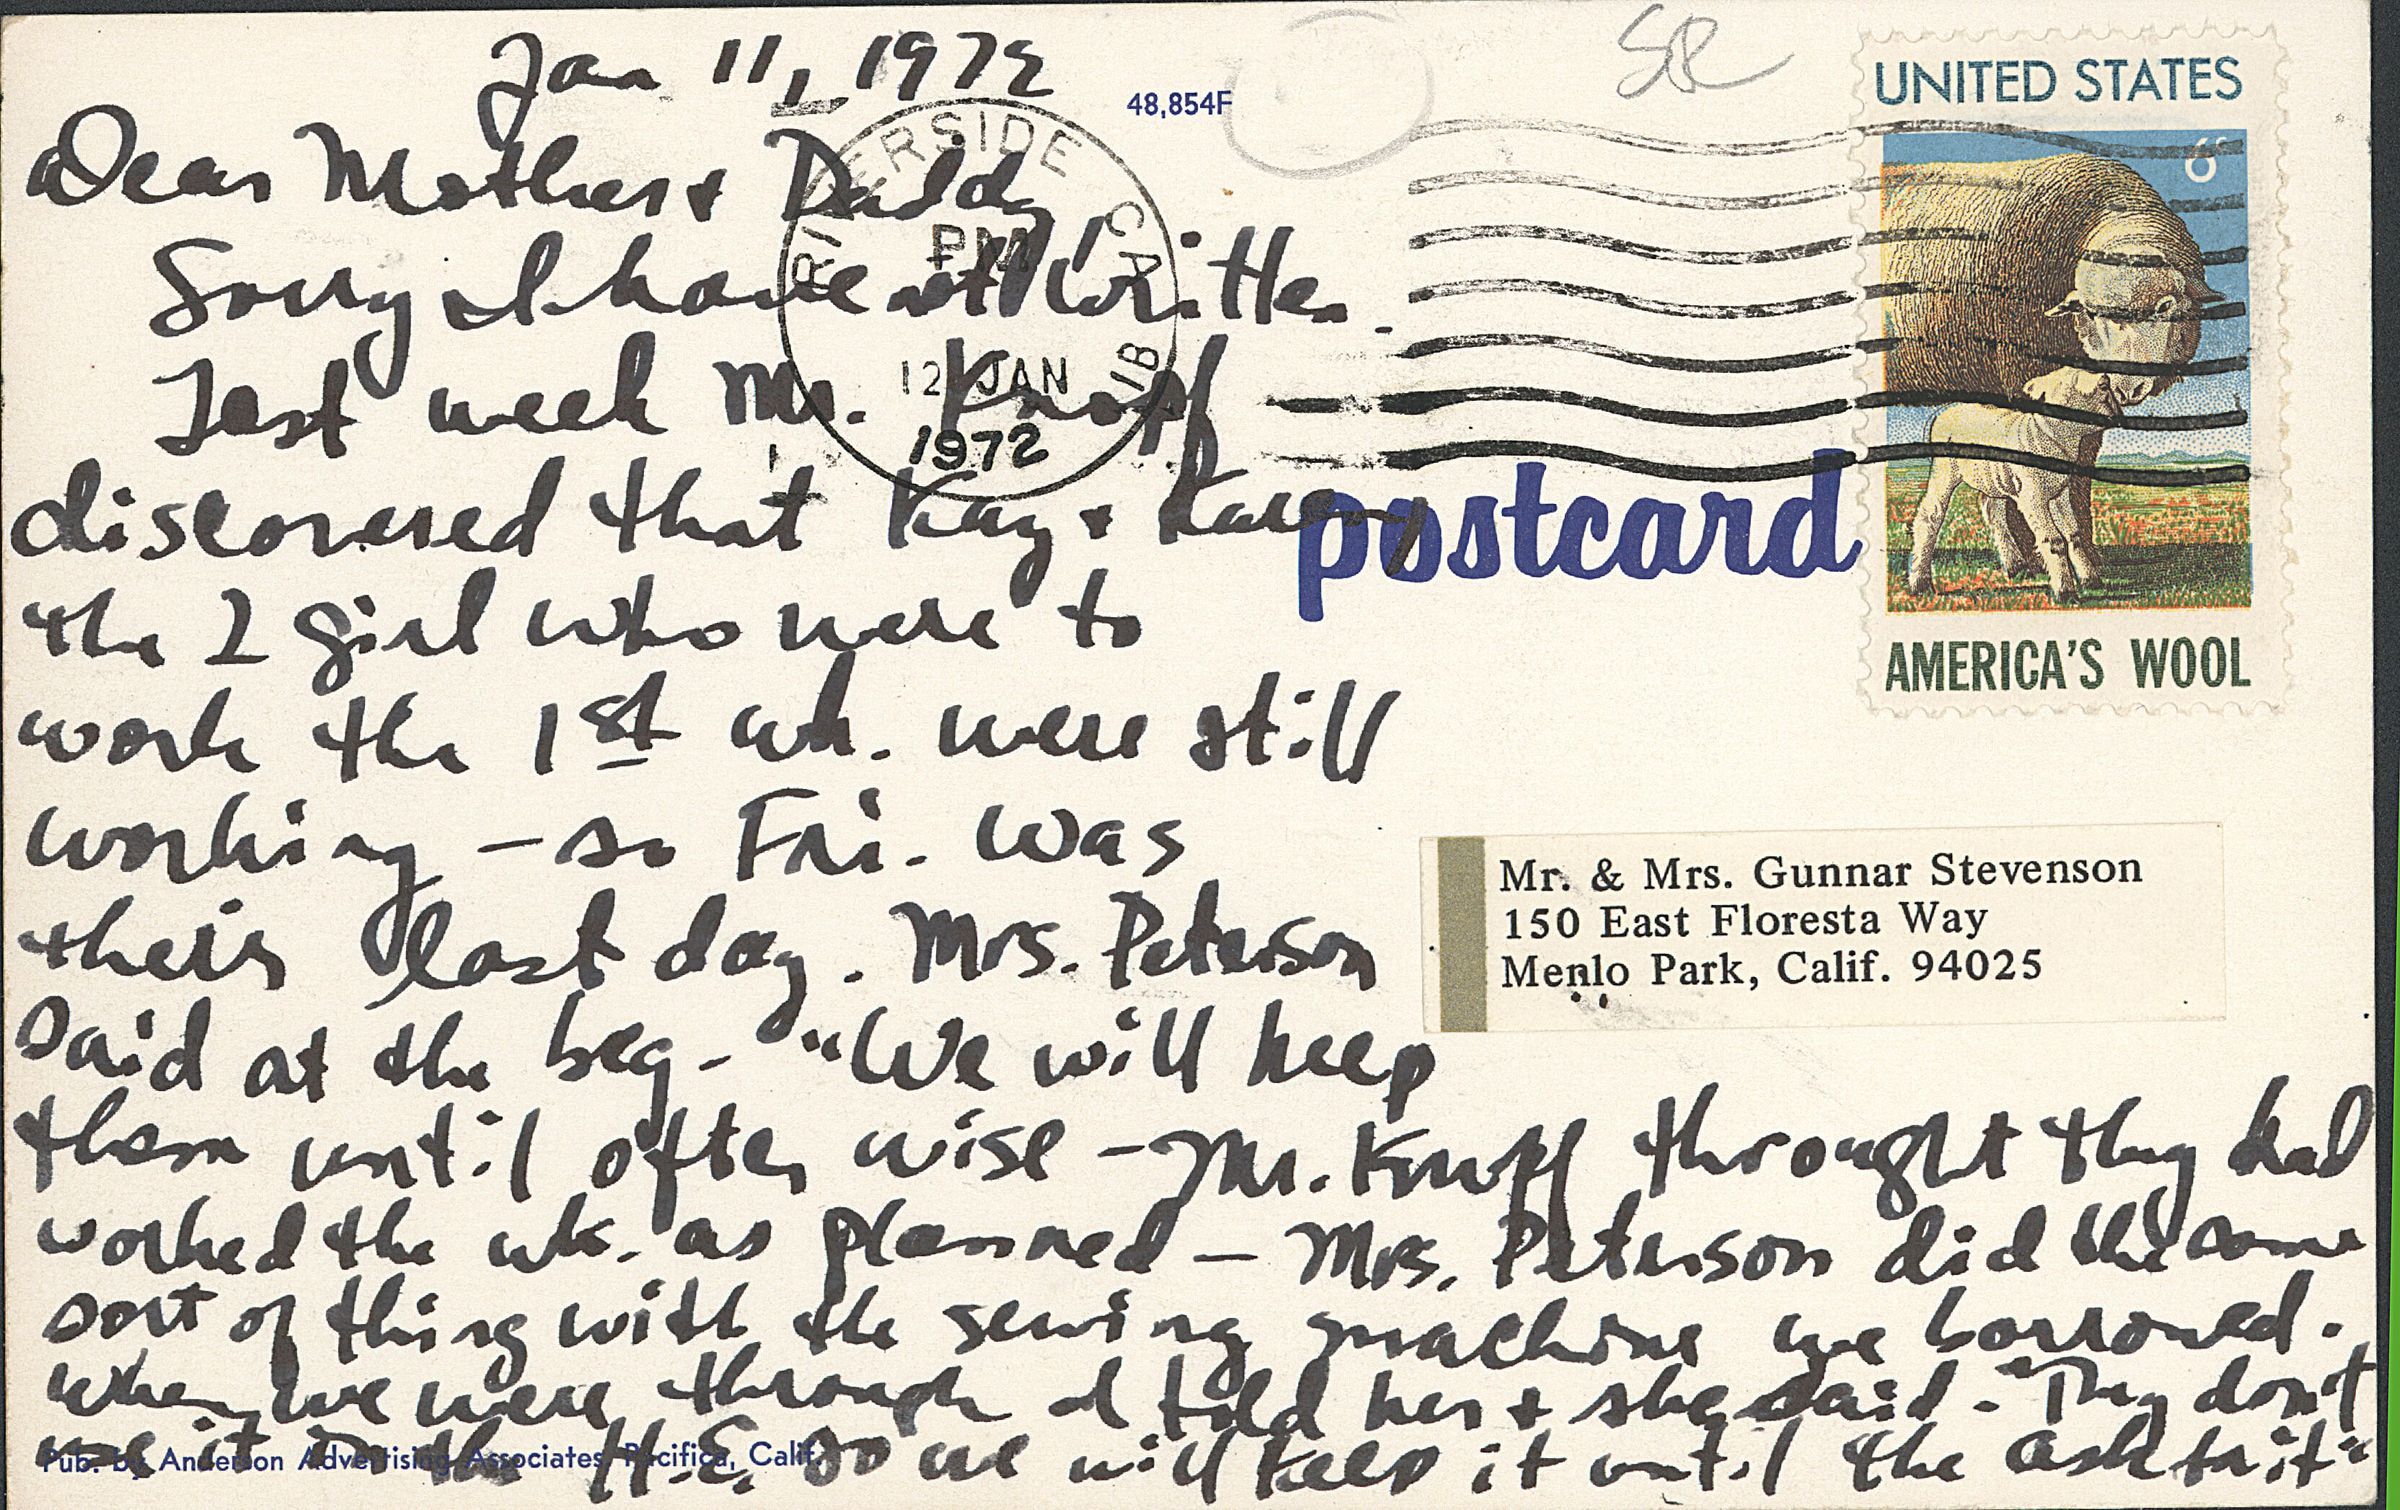 Jan 11, 1972
48,854F
SR
UNITED STATES
6c
Dear Mother & Daddy
RIVERSIDE CALIB
PM
12 JAN
1972
Sorry I have not written.
Last week Mr. Knopf
discovered that Kay &
postcard
AMERICA'S WOOL
the 2 girl who were to
work the 1st wk. were still
working – so Fri. was
their last day. Mrs. Peterson
said at the beg - "We will keep
them until ofter wise – Mr. Knopf throught they had
worked the wk. as planned – Mrs. Peterson did the same
sort of thing with the sewing machine we borrowed.
when we were through I told her & she said - "They don't
use it in the H.E. so we will keep it until the ask for it"
Mr. & Mrs. Gunnar Stevenson
150 East Floresta Way
Menlo Park, Calif. 94025
Pub. by Anderson Advertising Associates Pacifica, Calif.